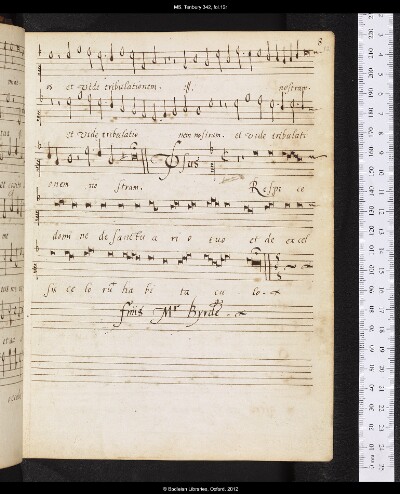 MS. Tenbury 342, fol.12r
os et vide tribulationem. :||: nostram.
et vide tribulatio nem nostram. et vide tribulati
onem no stram. Respi ce
domi ne de sanctu a ri o tuo et de excel
so ce lo rū ha bi ta cu lo.
finis Mr Byrde.
© Bodleian Libraries, Oxford, 2012